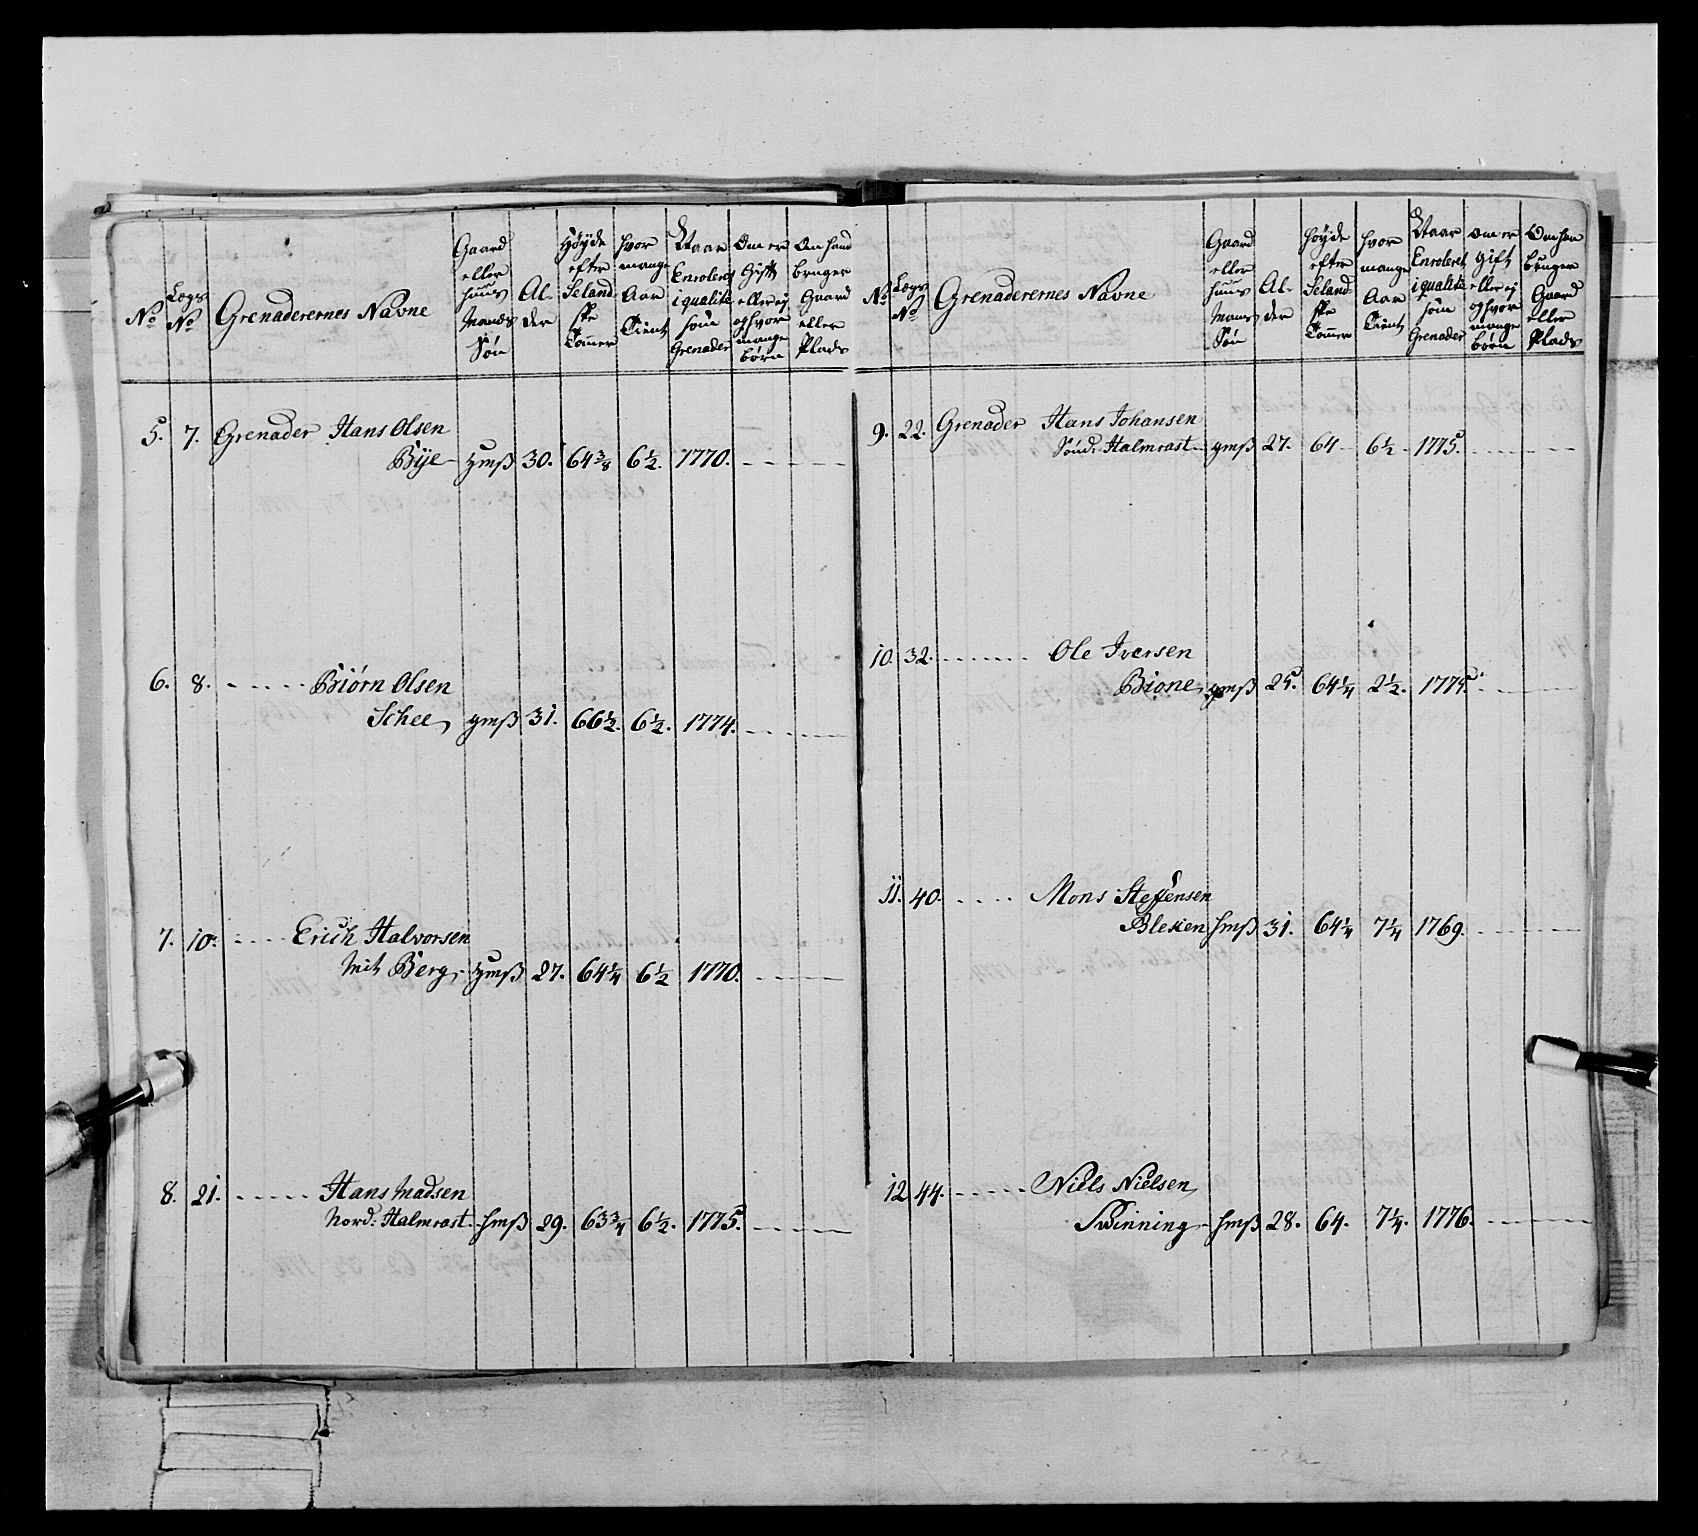 No
Lægs No
Grenaderernes Navne
Gaard eller Huus Mands Søn
Alder
Høyde efter Selandske Tommer
Hvor mange Aar Tient
Ao Enroleret i qualite som Grenader
Om er Gift eller ej og hvor mange børn
Om hand bruger Gaard eller Plads
5. 7. Grenader Hans Olsen
Bije gmß 30. 64 3/8 6 1/2. 1770.
6. 8. Biörn Olsen
Schee gmß 31. 66 1/2. 6 1/2. 1774.
7. 10. Erich Halvorsen
Mit Berg gmß 27. 64 1/4 6 1/2 1770.
8. 21. Hans Madsen
Nord: Halmrast hmß 29. 63 3/4 6 1/2. 1775.
No
Lægs No
Grenaderernes Navne
Gaard eller Huus Mans Søn
Alder
Høyde efter Selandske Tommer
Hvor mange Aar Tient
Enroleret i qualite som Grenader
Om er Gift eller ej og hvor mange børn
Om han bruger Gaard eller Plads
9. 22. Grenader Hans Johansen
Sönd: Halmrast gmß 27. 64 6 1/2 1775.
10. 32. Ole Iversen
Bione gmß 25. 64 1/4 2 1/2. 1775.
11. 40. Mons Steffensen
Bleken hmß 31. 64 1/4 7 1/4 1769.
12 44. Niels Nielsen
Svinning hmß 28. 64. 7 1/4. 1776.